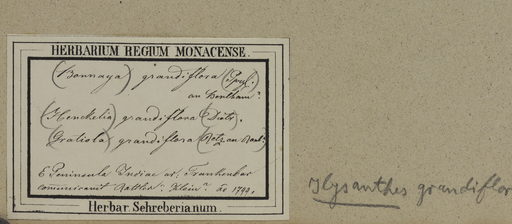 HERBARIUM REGIUM MONACENSE.
(Bonnaya) grandiflora (Spgl.
an Bentham?
(Henckelia) grandiflora (Dietr.
(Gratiola) grandiflora (Retz an Roxb?)
E Peninsula Indiae or. Trankenbar
communicavit Rottler? Klein? ao 1799.
Herbar. Schreberianum.
Ilysanthes grandiflor